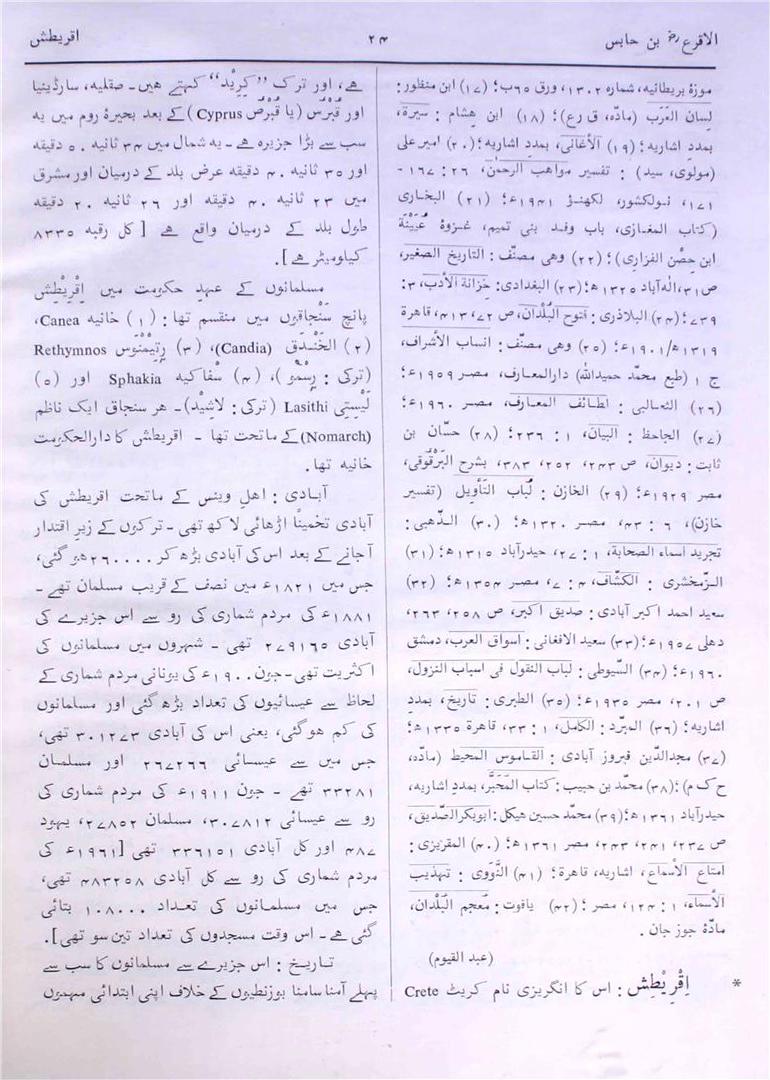 الاقرع رض بن حابس
۲۴
اقریطش
موزۂ بریطانیہ، شمارہ ۱۳۰۲، ورق ۶۵ب؛ (۱۷) ابن منظور:
لسان العرب (مادّہ، ق رع)؛ (۱۸) ابن ہشام : سیرۃ،
بمدد اشاریہ؛ (۱۹) الأغانی، بمدد اشاریہ؛ (۲۰) امیر علی
(مولوی، سید) : تفسیر مواهب الرحمٰن، ۲۶ : ۱۶۷-
۱۷۱، نولکشور، لکھنؤ ۱۹۴۱ء؛ (۲۱) البخاری
(کتاب المغازی، باب وفد بنی تمیم، غزوۃ عُیَیْنَة
ابن حِصْن الفزاری)؛ (۲۲) وهی مصنّف : التاریخ الصغیر،
ص۳۱، الٰہ آباد ۱۳۲۵ھ؛ (۲۳) البغدادی: خزانة الأدب، ۳:
۷۳۹؛ (۲۴) البلاذری : فتوح البُلْدان، ص ۷۲، ۴۱۳، قاهرة
۱۳۱۹ھ/۱۹۰۱ء؛ (۲۵) وهی مصنّف : انساب الأشراف،
ج ۱ (طبع محمّد حمیداللہ) دارالمعارف، مصر ۱۹۵۹ء؛
(۲۶) الثعالبی : لطائف المعارف، مصر ۱۹۶۰ء؛
(۲۷) الجاحظ : البیان، ۱ : ۲۳۶؛ (۲۸) حسّان بن
ثابت : دیوان، ص ۲۴۳، ۲۵۲، ۳۸۳، بشرح البَرْقُوقی،
مصر ۱۹۲۹ء؛ (۲۹) الخازن : لُباب التَأویل (تفسیر
خازن)، ۶ : ۴۳، مصر ۱۳۲۰ھ؛ (۳۰) الذّهبی :
تجرید أسماء الصحابة، ۱ : ۲۷، حیدرآباد ۱۳۱۵ھ؛ (۳۱)
الزّمخشری : الکشّاف، ۴ : ۷، مصر ۱۳۵۴ھ؛ (۳۲)
سعید احمد اکبر آبادی : صدیق اکبر، ص ۲۵۸، ۲۶۳،
دهلی ۱۹۵۷ء؛ (۳۳) سعید الافغانی : اسواق العرب، دمشق
۱۹۶۰ء؛ (۳۴) السّیوطی : لباب النقول فی اسباب النزول،
ص ۲۰۱، مصر ۱۹۳۵ء؛ (۳۵) الطبری : تاریخ، بمدد
اشاریہ؛ (۳۶) المبرّد : الکامل، ۱ : ۳۳، قاهرة ۱۳۳۵ھ؛
(۳۷) مجدالدّین فیروز آبادی : القاموس المحیط (مادّہ،
ح ک م)؛ (۳۸) محمّد بن حبیب : کتاب المُحَبَّر، بمدد اشاریہ،
حیدرآباد ۱۳۶۱ھ؛ (۳۹) محمّد حسین هیکل : ابوبکر الصّدیق،
ص ۲۳۷، ۲۴۱، ۲۴۳، مصر ۱۳۶۱ھ؛ (۴۰) المقریزی :
امتاع الأسماع، اشاریہ، قاهرة؛ (۴۱) النَّوَوی : تهذیب
الأسماء، ۱ : ۱۲۴، مصر؛ (۴۲) یاقوت : مُعجم البُلْدان،
مادّۂ جوز جان .
(عبد القیوم)
* اِقْرِیْطِش : اس کا انگریزی نام کریٹ Crete
ہے، اور ترک ”کِرِیْد“ کہتے ہیں۔ صقلیہ، سارڈینیا
اور قُبْرُس (یا قُبْرُص Cyprus) کے بعد بحیرۂ روم میں یہ
سب سے بڑا جزیرہ ہے۔ یہ شمال میں ۳۴ ثانیہ ۵۰ دقیقہ
اور ۳۵ ثانیہ ۴۰ دقیقہ عرض بلد کے درمیان اور مشرق
میں ۲۳ ثانیہ ۴۰ دقیقہ اور ۲۶ ثانیہ ۲۰ دقیقہ
طول بلد کے درمیان واقع ہے [ کل رقبہ ۸۳۳۵
کیلومیٹر ہے ].
مسلمانوں کے عہدِ حکومت میں اِقْرِیْطِش
پانچ سَنْجاقوں میں منقسم تھا : (۱) خانیہ Canea،
(۲) الخَنْدَق (Candia)، (۳) رِتِیْمْنوس Rethymnos
(ترکی : رِسْمُو)، (۴) سْفاکیہ Sphakia اور (۵)
لَیْسِتِی Lasithi (ترکی : لاشِیْد)۔ ہر سنجاق ایک ناظم
(Nomarch) کے ماتحت تھا ۔ اقریطش کا دارالحکومت
خانیہ تھا .
آبادی : اهلِ وینس کے ماتحت اقریطش کی
آبادی تخمیناً اڑھائی لاکھ تھی ۔ ترکوں کے زیرِ اقتدار
آجانے کے بعد اس کی آبادی بڑھ کر ۲۶۰۰۰۰ ہو گئی،
جس میں ۱۸۲۱ء میں نصف کے قریب مسلمان تھے ۔
۱۸۸۱ء کی مردم شماری کی رو سے اس جزیرے کی
آبادی ۲۷۹۱۶۵ تھی ۔ شہروں میں مسلمانوں کی
اکثریت تھی۔ جون ۱۹۰۰ء کی یونانی مردم شماری کے
لحاظ سے عیسائیوں کی تعداد بڑھ گئی اور مسلمانوں
کی کم ہوگئی، یعنی اس کی آبادی ۳۰۱۲۷۳ تھی،
جس میں سے عیسائی ۲۶۷۲۶۶ اور مسلمان
۳۳۲۸۱ تھے ۔ جون ۱۹۱۱ء کی مردم شماری کی
رو سے عیسائی ۳۰۷۸۱۲، مسلمان ۲۷۸۵۲، یہود
۴۸۷ اور کل آبادی ۳۳۶۱۵۱ تھی [۱۹۶۱ء کی
مردم شماری کی رو سے کل آبادی ۴۸۳۲۵۸ تھی،
جس میں مسلمانوں کی تعداد ۱۰۸۰۰۰ بتائی
گئی ہے ۔ اس وقت مسجدوں کی تعداد تین سو تھی].
تاریخ : اس جزیرے سے مسلمانوں کا سب سے
پہلے آمنا سامنا بوزنطیوں کے خلاف اپنی ابتدائی مہموں